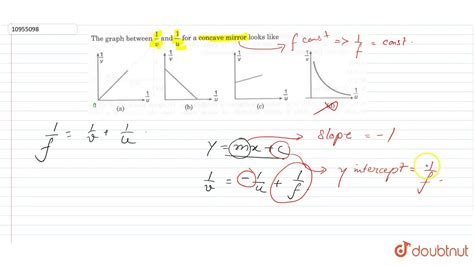 10955098
The graph between 1/v and 1/u for a concave mirror looks like
f const => 1/f = const.
1/v
1/v
1/v
1/v
0
1/u
1/u
1/u
1/u
(a)
(b)
(c)
1/f = 1/v + 1/u .
y = mx + c
slope = -1
1/v = - 1/u + 1/f
y intercept = 1/f .
doubtnut